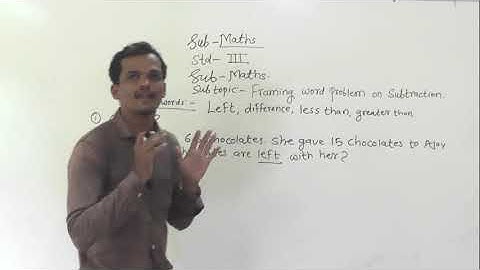 Sub-Maths
Std- III
Sub-Maths.
Subtopic- Framing word problem on Subtraction.
words:- Left, difference, less than, greater than
①
6 Chocolates. She gave 15 Chocolates to Ajay
are left with her?